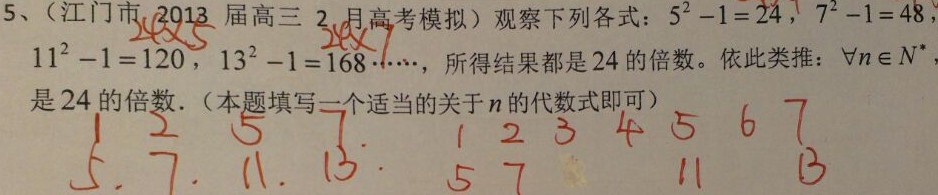 5、（江门市 2013 届高三 2 月高考模拟）观察下列各式：5² −1 = 24，7² −1 = 48，
24×5 24×7
11² −1 = 120，13² −1 = 168 ……，所得结果都是 24 的倍数。依此类推：∀n∈N*，
是 24 的倍数．（本题填写一个适当的关于 n 的代数式即可）
1 2 5 7. 1 2 3 4 5 6 7
5. 7. 11. 13. 5 7 11 13